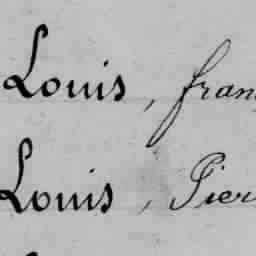 Louis, fran
Louis, Pier